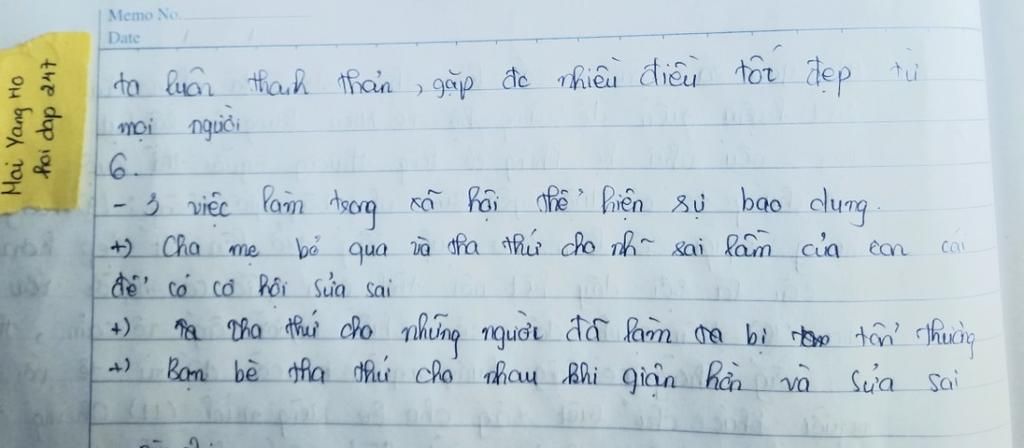 Memo No.
Date / /
Mai Yang Ho
hoi dap 247
ta luôn thanh thản, gặp đc nhiều điều tốt đẹp từ
mọi người
6.
- 3 việc làm trong xã hội thể hiện sự bao dung.
+) Cha mẹ bỏ qua và tha thứ cho nh~ sai lầm của con cái
để có cơ hội sửa sai
+) Ta tha thứ cho những người đã làm ta bị tổn thương
+) Bạn bè tha thứ cho nhau khi giận hờn và sửa sai